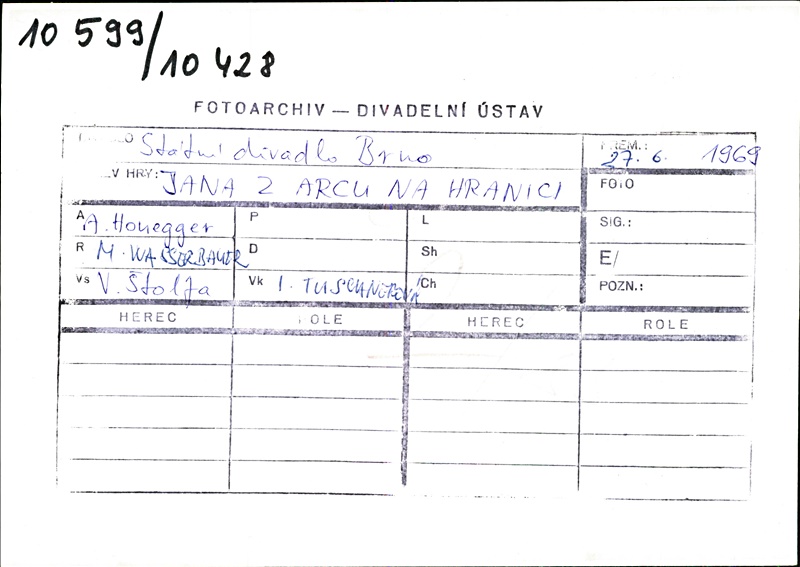 10 599/
10 428
FOTOARCHIV — DIVADELNÍ ÚSTAV
Státní divadlo Brno
PREM.: 27. 6. 1969
V HRY: JANA Z ARCU NA HRANICI
FOTO
A A. Honegger P L SIG.:
R M. WASSERBAUER D Sh E/
Vs V. Štolfa Vk I. TUSCHNEROVÁ Ch POZN.:
HEREC ROLE HEREC ROLE